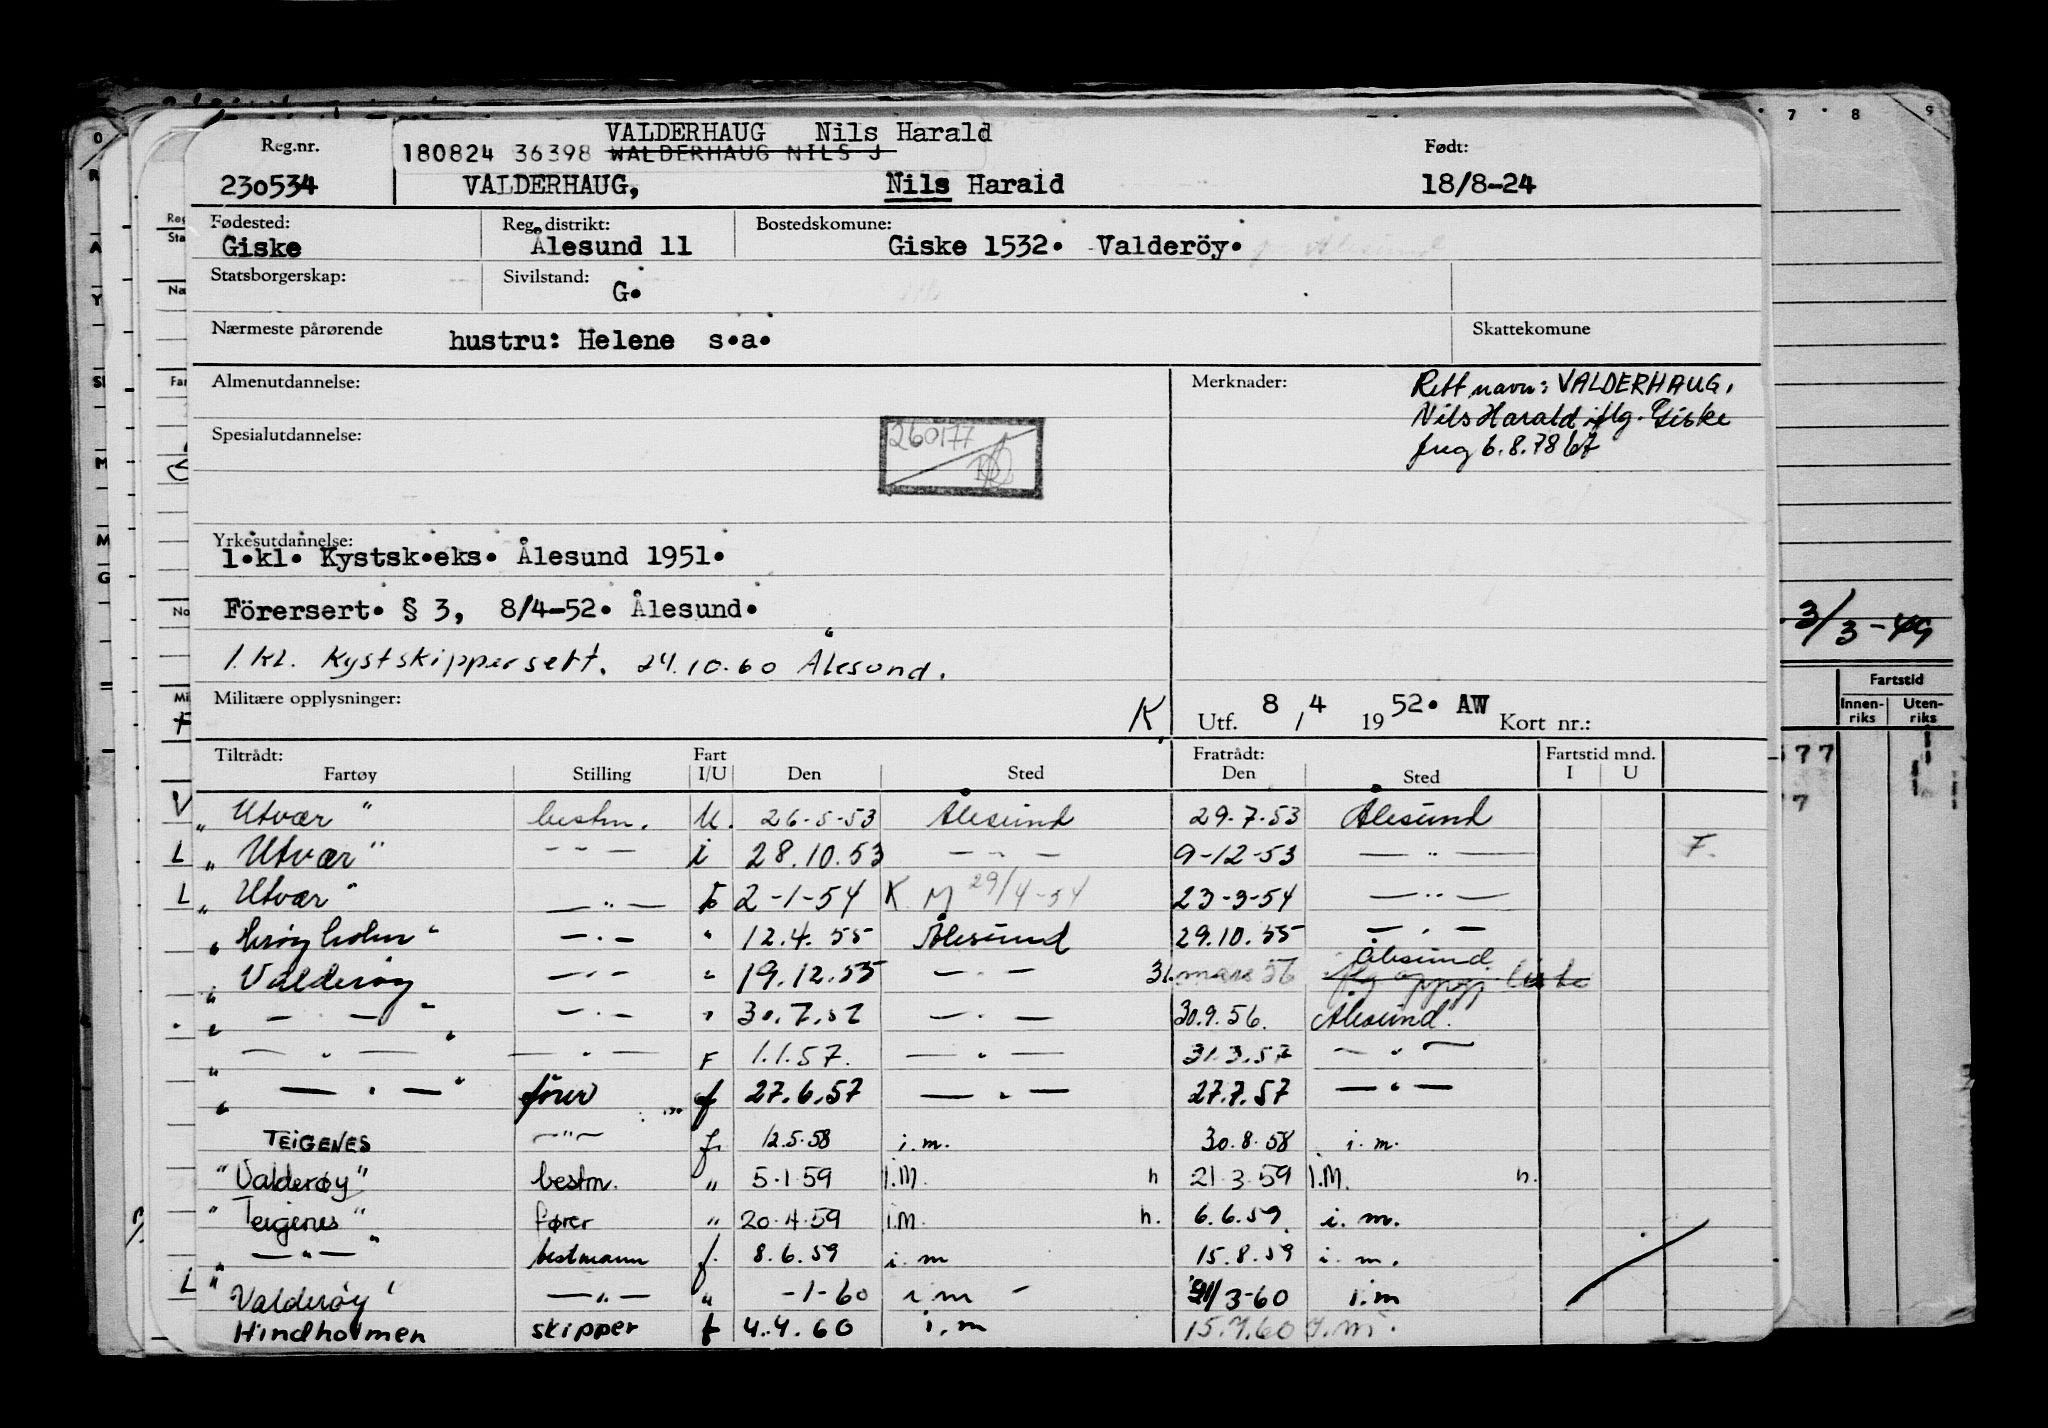 VALDERHAUG Nils Harald
Reg.nr. 180824 36398 WALDERHAUG NILS J Født:
230534 VALDERHAUG, Nils Harald 18/8-24
Fødested: Reg. distrikt: Bostedskomune:
Giske Ålesund 11 Giske 1532. Valderöy.
Statsborgerskap: Sivilstand:
G.
Nærmeste pårørende hustru: Helene s.a. Skattekomune
Almenutdannelse: Merknader: Rett navn: VALDERHAUG,
Nils Harald iflg. Giske
freg 6.8.78
Spesialutdannelse: 260177
Yrkesutdannelse:
1.kl. Kystsk.eks. Ålesund 1951.
Förersert. § 3, 8/4-52. Ålesund.
1. kl. Kystskippersett. 24.10.60 Ålesund.
Militære opplysninger: K Utf. 8 / 4 19 52. AW Kort nr.:
Tiltrådt: Fart Fratrådt: Fartstid mnd.
Fartøy Stilling I/U Den Sted Den Sted I U
V „ Utvær " bestm. U. 26-5-53 Ålesund 29.7.53 Ålesund
L „ Utvær " - " - i 28.10.53 - " - 9-12-53 - " - F.
L „ Utvær " - " - F 2-1-54 K M 29/4-54 23-3-54 - " -
„ holm " - " - " 12.4.55 Ålesund 29.10.55 - " -
„ Valderøy - " - " 19.12.55 - " - 31. mars 56 Ålesund
„ - " - " - " - " 30.7.57 - " - 30.9.56. Ålesund.
„ - " - " - " - F 1.1.57. - " - 31.3.57 - " -
„ - " - " fører f 27.6.57 - " - 27.7.57 - " -
TEIGENES - " - f. 12.5.58 i.m. 30.8.58 i.m.
" Valderøy " bestm. " 5.1.59 I.M. h 21.3.59 I.M. h.
" Teigenes " fører " 20.4.59 i.M. h. 6.6.59 i.m.
" - " - " bestmann f. 8.6.59 i.m 15.8.59 i.m.
L " Valderøy " - " - " -1-60 i m - /3-60 i.m
Hindholmen skipper f 4.4.60 i.m 15.7.60 i.m.
0 R A Y M M G
7 8 9
3/3-49
Fartstid
Innen-riks Uten-riks
77
7